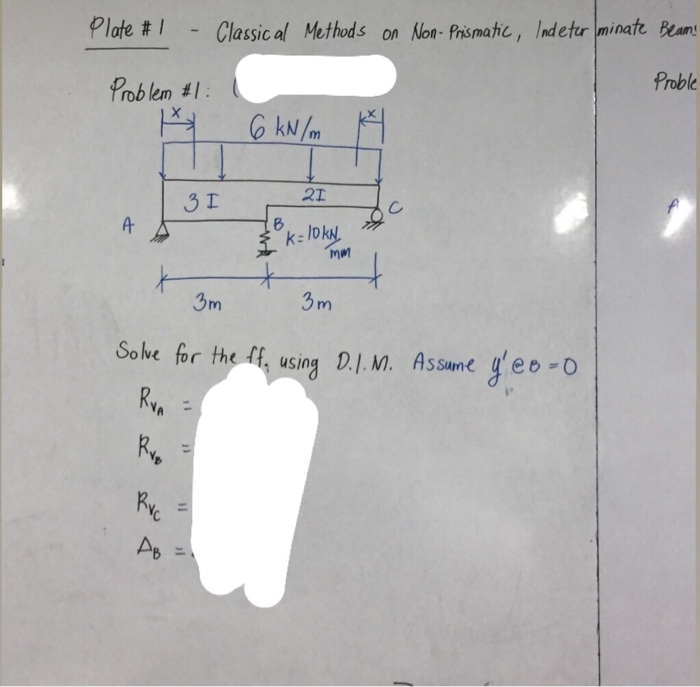 Plate #1 - Classical Methods on Non-Prismatic, Indeterminate Beams
Problem #1: (
Proble
x 6 kN/m x
3I 2I
A B C
k=10kN/mm
3m 3m
Solve for the ff. using D.I.M. Assume y'@B=0
RvA =
RvB =
RvC =
ΔB =